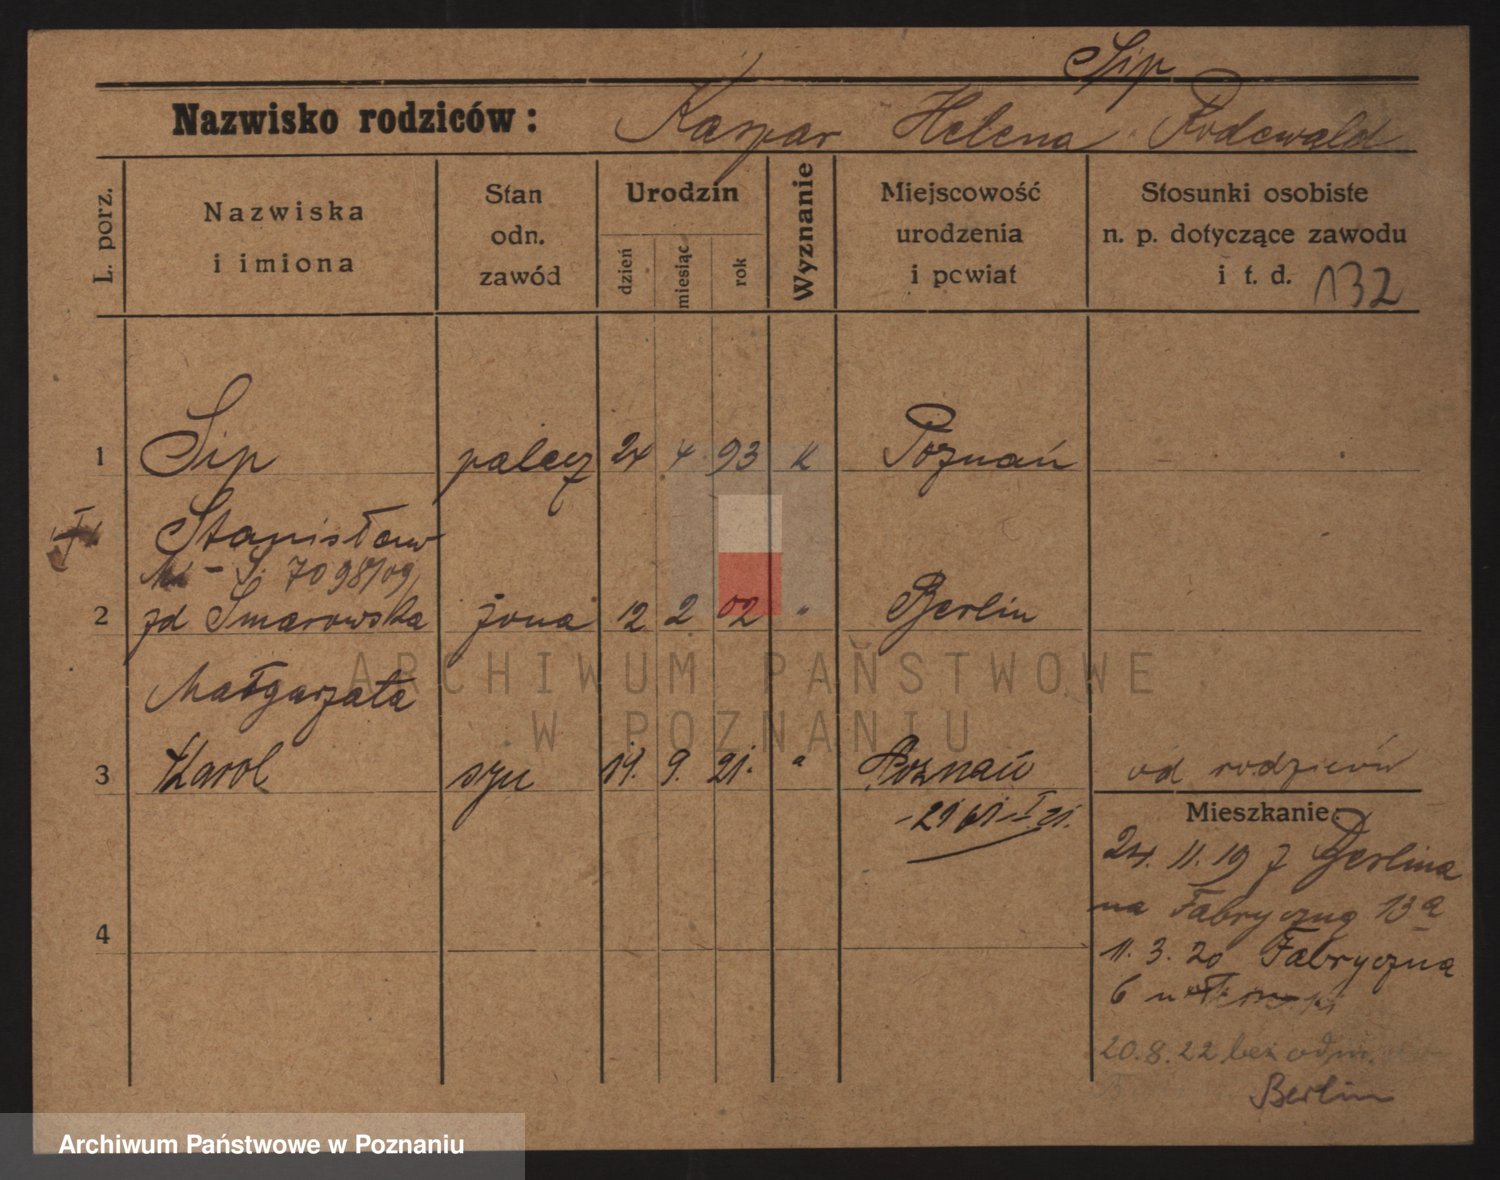 Sip
Nazwisko rodziców: Kaspar Helena Rodewald
L. porz.
Nazwiska
i imiona
Stan
odn.
zawód
Urodzin
dzień
miesiąc
rok
Wyznanie
Miejscowość
urodzenia
i powiat
Stosunki osobiste
n. p. dotyczące zawodu
i t. d. 132
1 Sip palacz 24 4 93 K Poznań
Stanisław
7098/09
2 zd Smarowska żona 12 2 02 " Berlin
Małgorzata
3 Karol syn 19. 9. 21. " Poznań od rodziców
Mieszkanie:
24. 11. 19 z Berlina
na Fabryczną 13a
11. 3. 20 Fabryczna
6 u
4
20.8.22 bez odm.
Berlin
ARCHIWUM PAŃSTWOWE
W POZNANIU
Archiwum Państwowe w Poznaniu